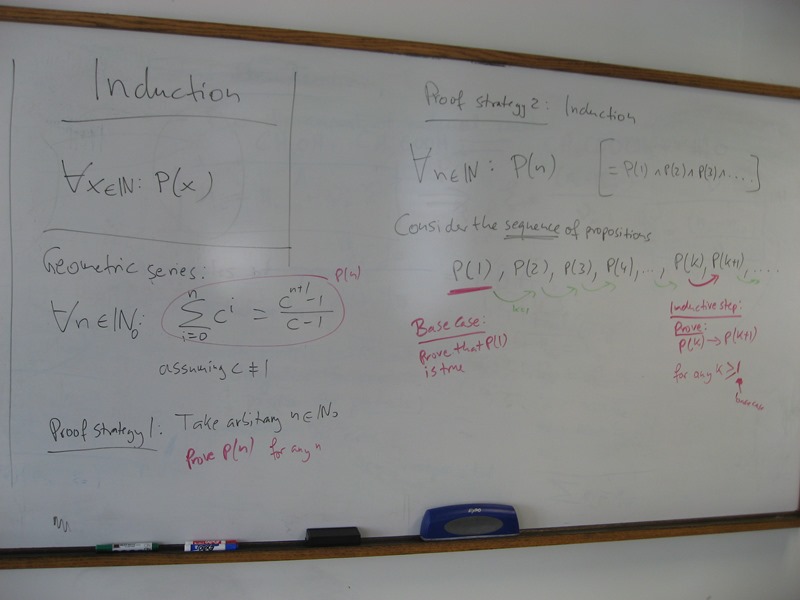 Induction
∀x∈ℕ: P(x)
Geometric series:
P(n)
∀n∈ℕ₀: ∑_{i=0}^{n} c^i = (c^{n+1}-1)/(c-1)
assuming c ≠ 1
Proof strategy 1: Take arbitrary n∈ℕ₀
Prove P(n) for any n
Proof strategy 2: Induction
∀n∈ℕ: P(n) [= P(1) ∧ P(2) ∧ P(3) ∧ ....]
Consider the sequence of propositions
P(1), P(2), P(3), P(4), ..., P(k), P(k+1), ....
Base case:
Prove that P(1)
is true
Inductive step:
Prove:
P(k) → P(k+1)
for any k ≥ 1
base case
EXPO